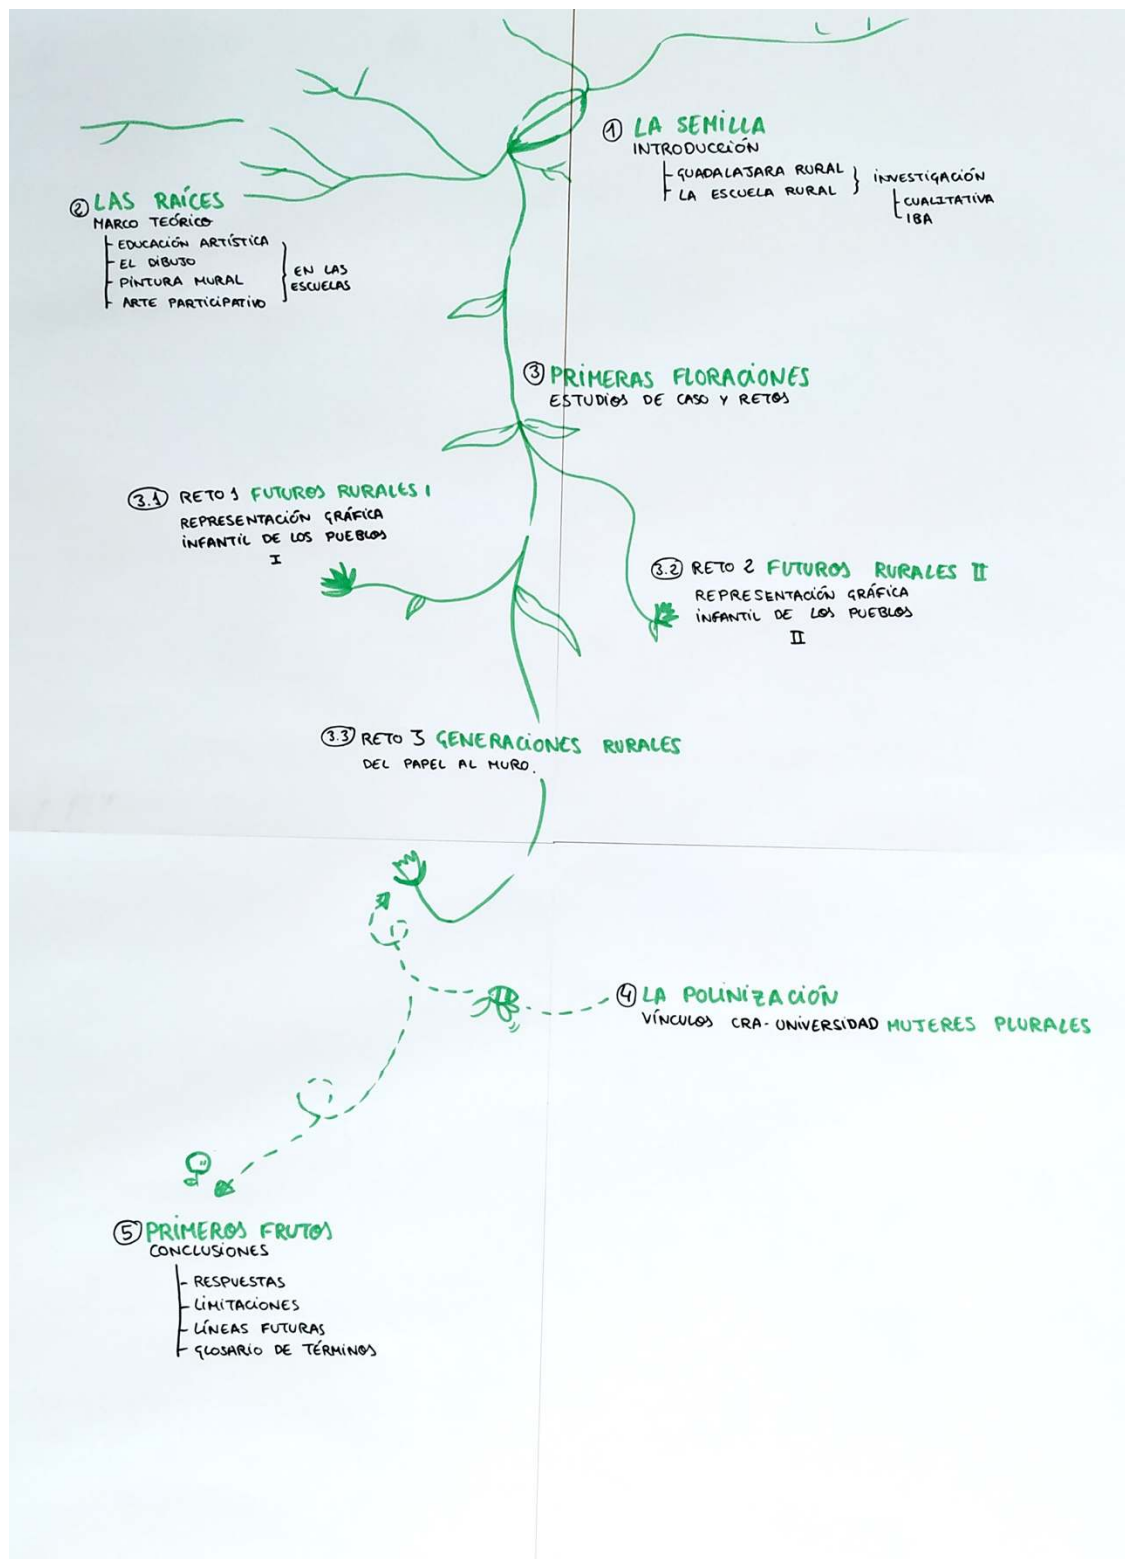 ① LA SEMILLA
INTRODUCCIÓN
GUADALAJARA RURAL
LA ESCUELA RURAL
INVESTIGACIÓN
CUALITATIVA
IBA
② LAS RAÍCES
MARCO TEÓRICO
EDUCACIÓN ARTÍSTICA
EL DIBUJO
PINTURA MURAL
ARTE PARTICIPATIVO
EN LAS
ESCUELAS
③ PRIMERAS FLORACIONES
ESTUDIOS DE CASO Y RETOS
3.1 RETO 1 FUTUROS RURALES I
REPRESENTACIÓN GRÁFICA
INFANTIL DE LOS PUEBLOS
I
3.2 RETO 2 FUTUROS RURALES II
REPRESENTACIÓN GRÁFICA
INFANTIL DE LOS PUEBLOS
II
3.3 RETO 3 GENERACIONES RURALES
DEL PAPEL AL MURO.
④ LA POLINIZACIÓN
VÍNCULOS CRA-UNIVERSIDAD MUJERES PLURALES
⑤ PRIMEROS FRUTOS
CONCLUSIONES
RESPUESTAS
LIMITACIONES
LÍNEAS FUTURAS
GLOSARIO DE TÉRMINOS